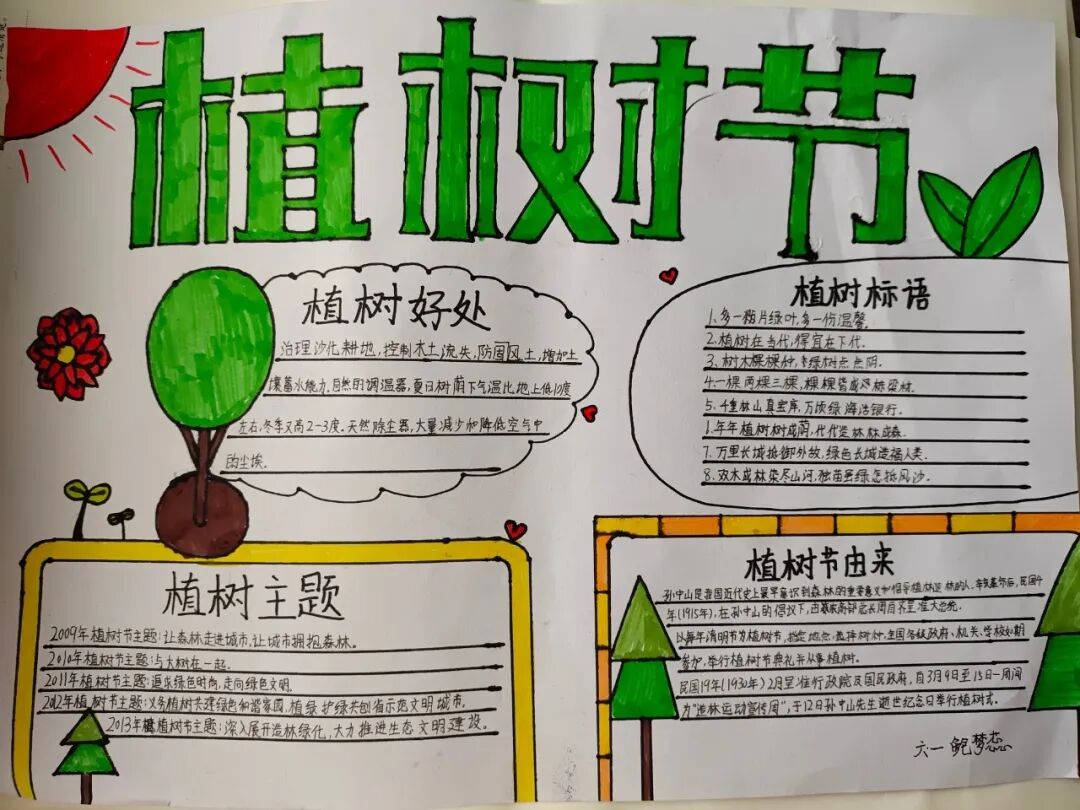 植树节
植树好处
治理沙化耕地,控制水土流失,防固风土,增加土
壤蓄水能力.自然的调温器,夏日树荫下气温比地上低10度
左右,冬季又高2-3度.天然除尘器,大量减少和降低空气中
的尘埃.
植树标语
1、多一片绿叶,多一份温馨.
2.植树在当代,得宜在下代.
3、树木棵棵种,绿树点点阴.
4.一棵两棵三棵,棵棵皆成栋梁林.
5、重林山真宝库,万顷绿海活银行.
1.年年植树树成荫,代代造林林成森.
7、万里长城抵御外敌,绿色长城造福人类.
8、双木成林染尽山河,独苗虽绿怎抵风沙.
植树主题
2009年植树节主题:让森林走进城市,让城市拥抱森林.
2010年植树节主题:与大树在一起.
2011年植树节主题:追求绿色时尚,走向绿色文明.
2012年植树节主题:义务植树共建绿色和谐家园,植绿护绿共创省示范文明城市.
2013年植树节主题:深入展开造林绿化,大力推进生态文明建设.
植树节由来
孙中山是我国近代史上最早意识到森林的重要意义和倡导植林造林的人.辛亥革命后,民国4
年(1915年),在孙中山的倡议下,由农商部总长周自齐呈准大总统.
以每年清明节为植树节,指定地点,选择树种,全国各级政府、机关、学校如期
参加,举行植树节典礼并从事植树.
民国19年(1930年)2月呈准行政院及国民政府,自3月9日至15日一周间
为"造林运动宣传周",于12日孙中山先生逝世纪念日举行植树式.
六一 鲍梦恋